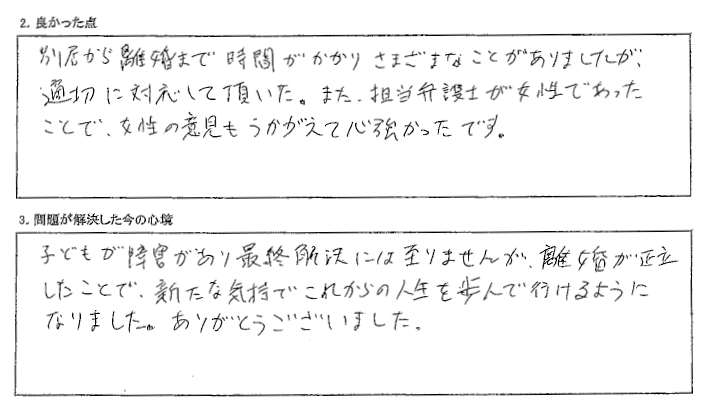 2. 良かった点
別居から離婚まで時間がかかりさまざまなことがありましたが、
適切に対応して頂いた。また、担当弁護士が女性であった
ことで、女性の意見もうかがえて心強かったです。
3. 問題が解決した今の心境
子どもが障害があり最終解決には至りませんが、離婚が正立
したことで、新たな気持でこれからの人生を歩んで行けるように
なりました。ありがとうございました。